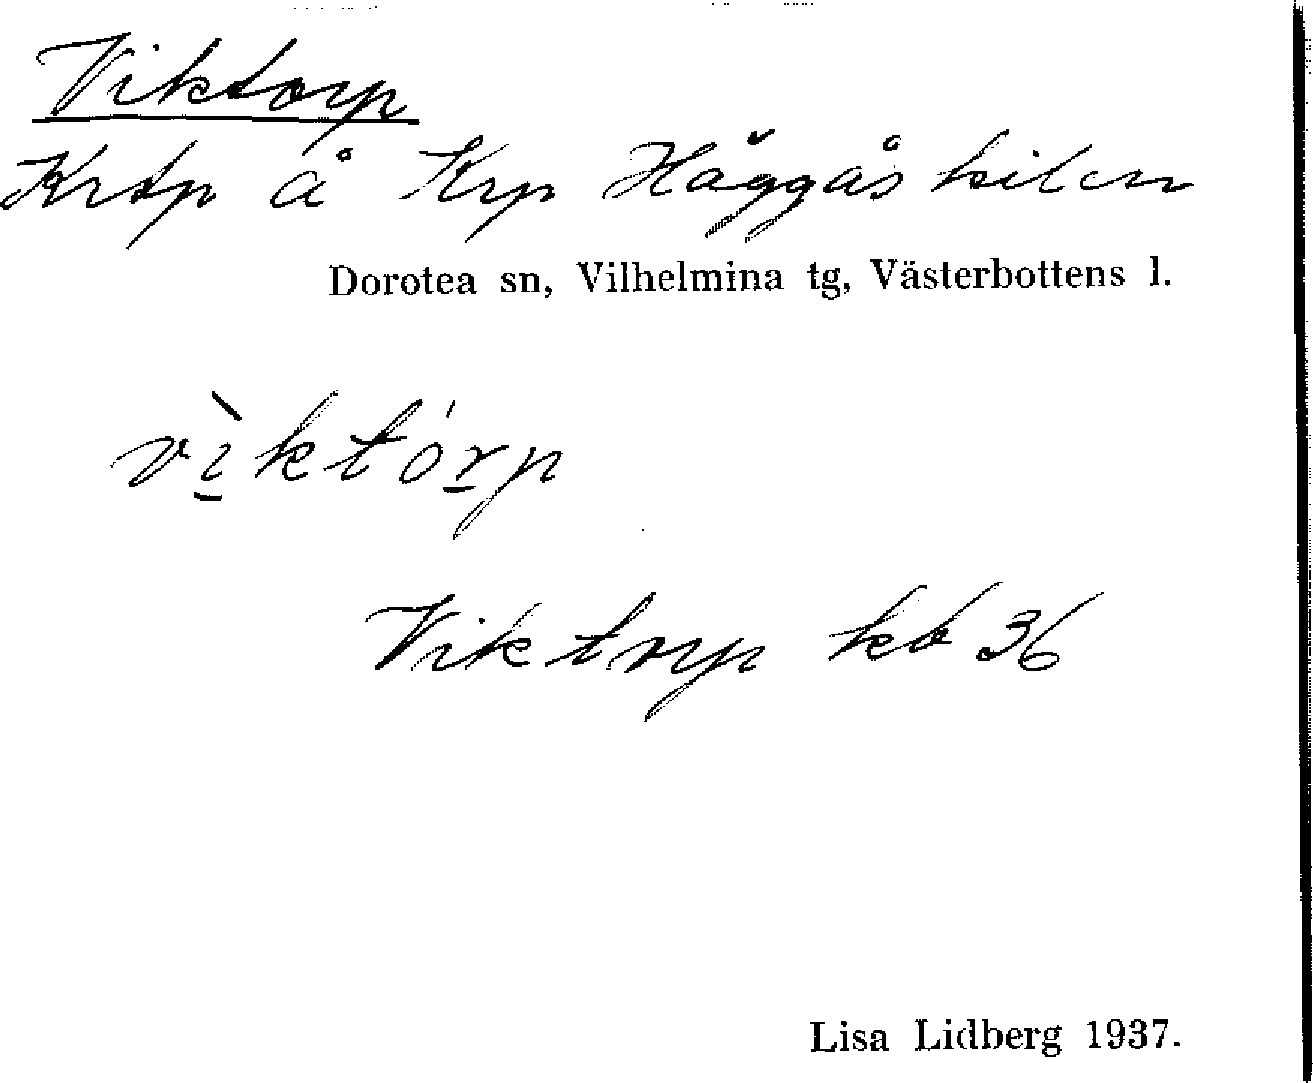 Viktorp
Krtp å Krp Häggåskilen
Dorotea sn, Vilhelmina tg, Västerbottens l.
vìktórp
Viktorp kb 36
Lisa Lidberg 1937.